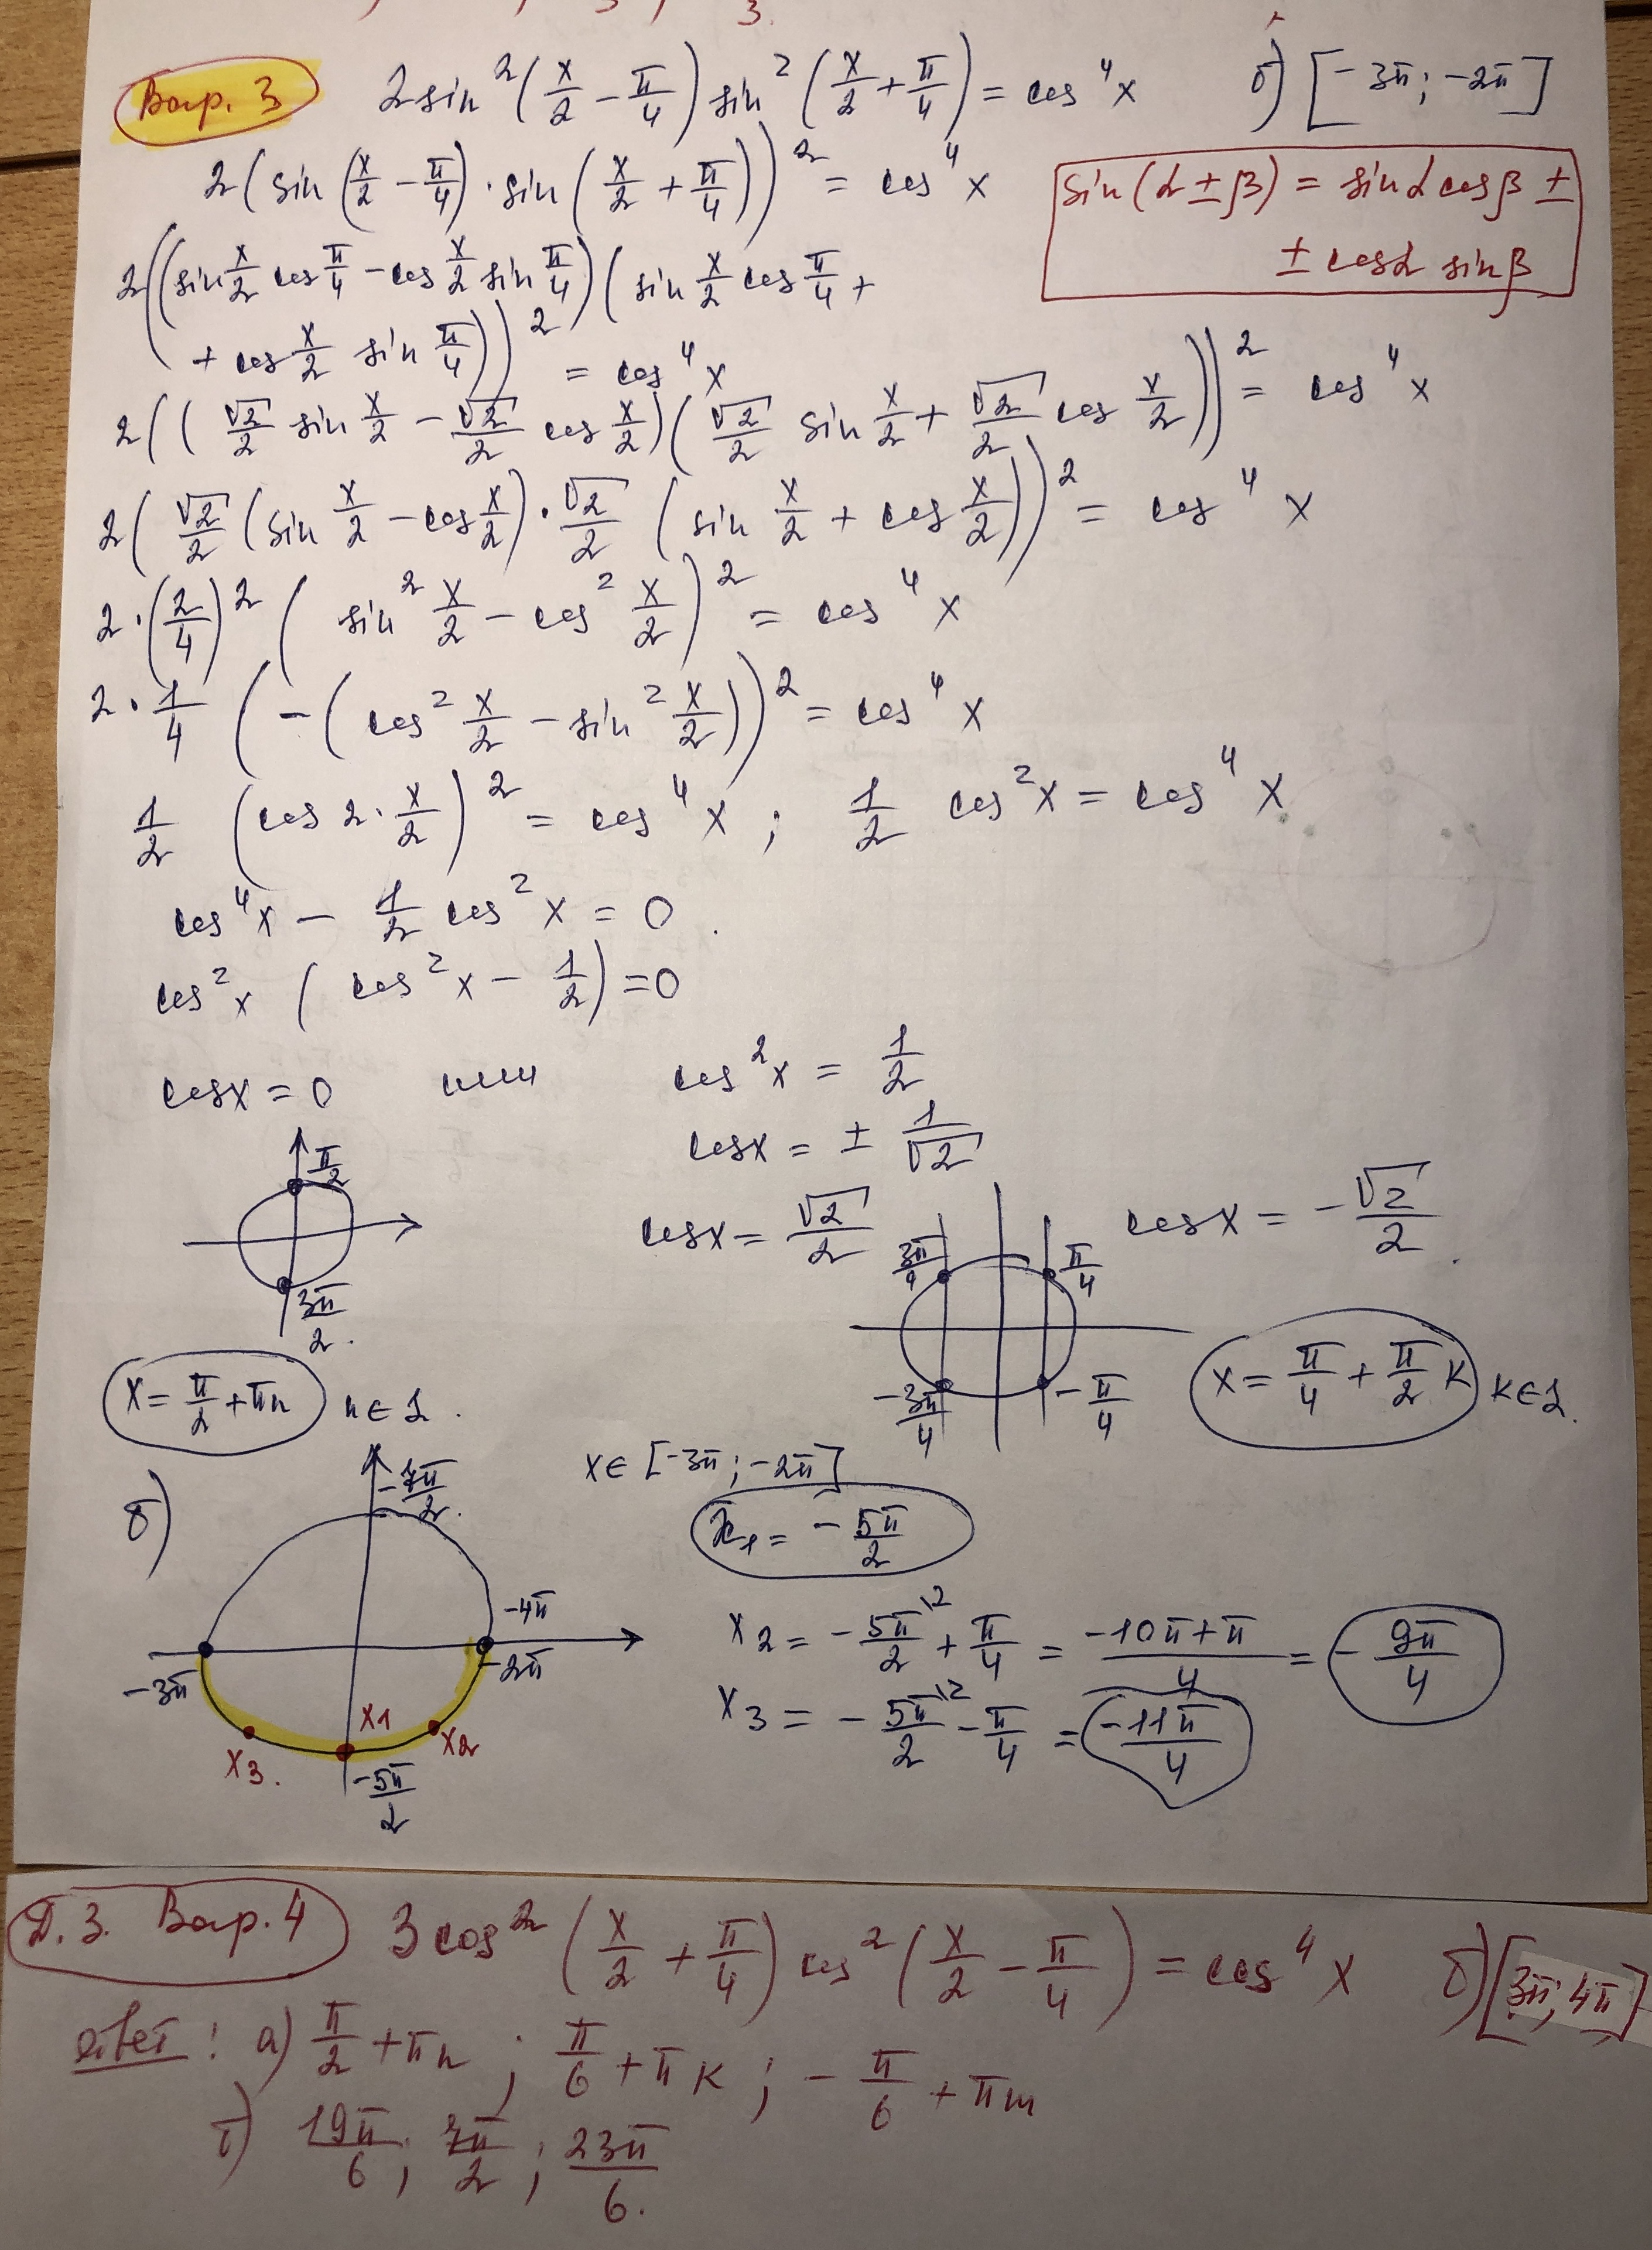 Вар. 3 2sin²(x/2 − π/4) sin²(x/2 + π/4) = cos⁴x б) [−3π; −2π]
2(sin(x/2 − π/4) · sin(x/2 + π/4))² = cos⁴x
sin(α ± β) = sinα cosβ ±
± cosα sinβ
2((sin x/2 cos π/4 − cos x/2 sin π/4)(sin x/2 cos π/4 +
+ cos x/2 sin π/4))² = cos⁴x
2((√2/2 sin x/2 − √2/2 cos x/2)(√2/2 sin x/2 + √2/2 cos x/2))² = cos⁴x
2(√2/2 (sin x/2 − cos x/2) · √2/2 (sin x/2 + cos x/2))² = cos⁴x
2 · (2/4)² (sin² x/2 − cos² x/2)² = cos⁴x
2 · 1/4 (−(cos² x/2 − sin² x/2))² = cos⁴x
1/2 (cos 2 · x/2)² = cos⁴x ; 1/2 cos²x = cos⁴x
cos⁴x − 1/2 cos²x = 0.
cos²x (cos²x − 1/2) = 0
cosx = 0 или cos²x = 1/2
cosx = ± 1/√2
cosx = √2/2 cosx = −√2/2.
π/2
3π/2.
3π/4 π/4
−3π/4 −π/4
x = π/2 + πn n ∈ Z.
x = π/4 + π/2 k k ∈ Z.
б) x ∈ [−3π; −2π]
−7π/2.
−4π
−3π −2π
x3. x1 x2
−5π/2
x₁ = −5π/2
x₂ = −5π/2 \2 + π/4 = −10π+π/4 = −9π/4
x₃ = −5π/2 \2 − π/4 = −11π/4
Д.З. Вар. 4 3cos²(x/2 + π/4) cos²(x/2 − π/4) = cos⁴x б) [3π; 4π]
ответ: а) π/2 + πn ; π/6 + πk ; −π/6 + πm
б) 19π/6; 7π/2; 23π/6.